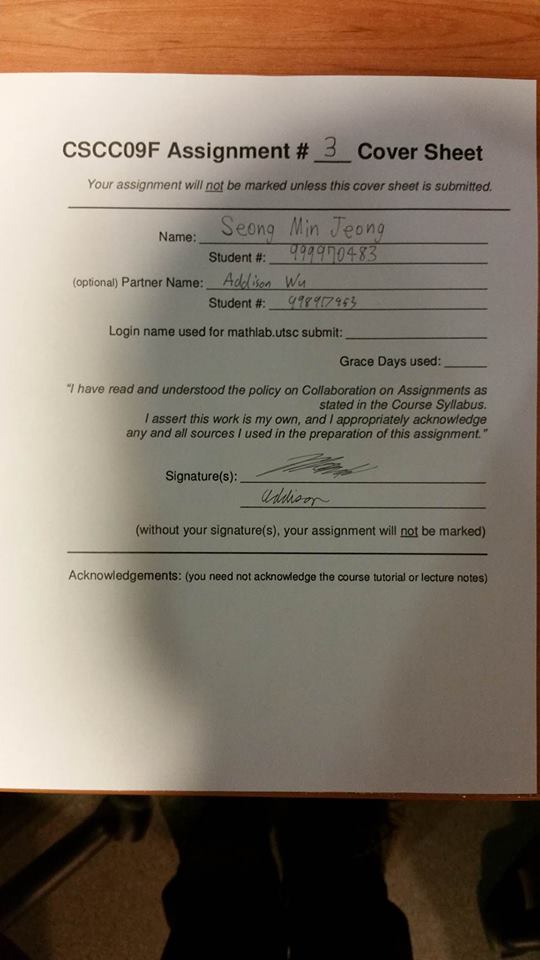 CSCC09F Assignment # 3 Cover Sheet
Your assignment will not be marked unless this cover sheet is submitted.
Name: Seong Min Jeong
Student #: 999970483
(optional) Partner Name: Addison Wu
Student #: 998917953
Login name used for mathlab.utsc submit:
Grace Days used:
"I have read and understood the policy on Collaboration on Assignments as
stated in the Course Syllabus.
I assert this work is my own, and I appropriately acknowledge
any and all sources I used in the preparation of this assignment."
Signature(s):
Addison
(without your signature(s), your assignment will not be marked)
Acknowledgements: (you need not acknowledge the course tutorial or lecture notes)